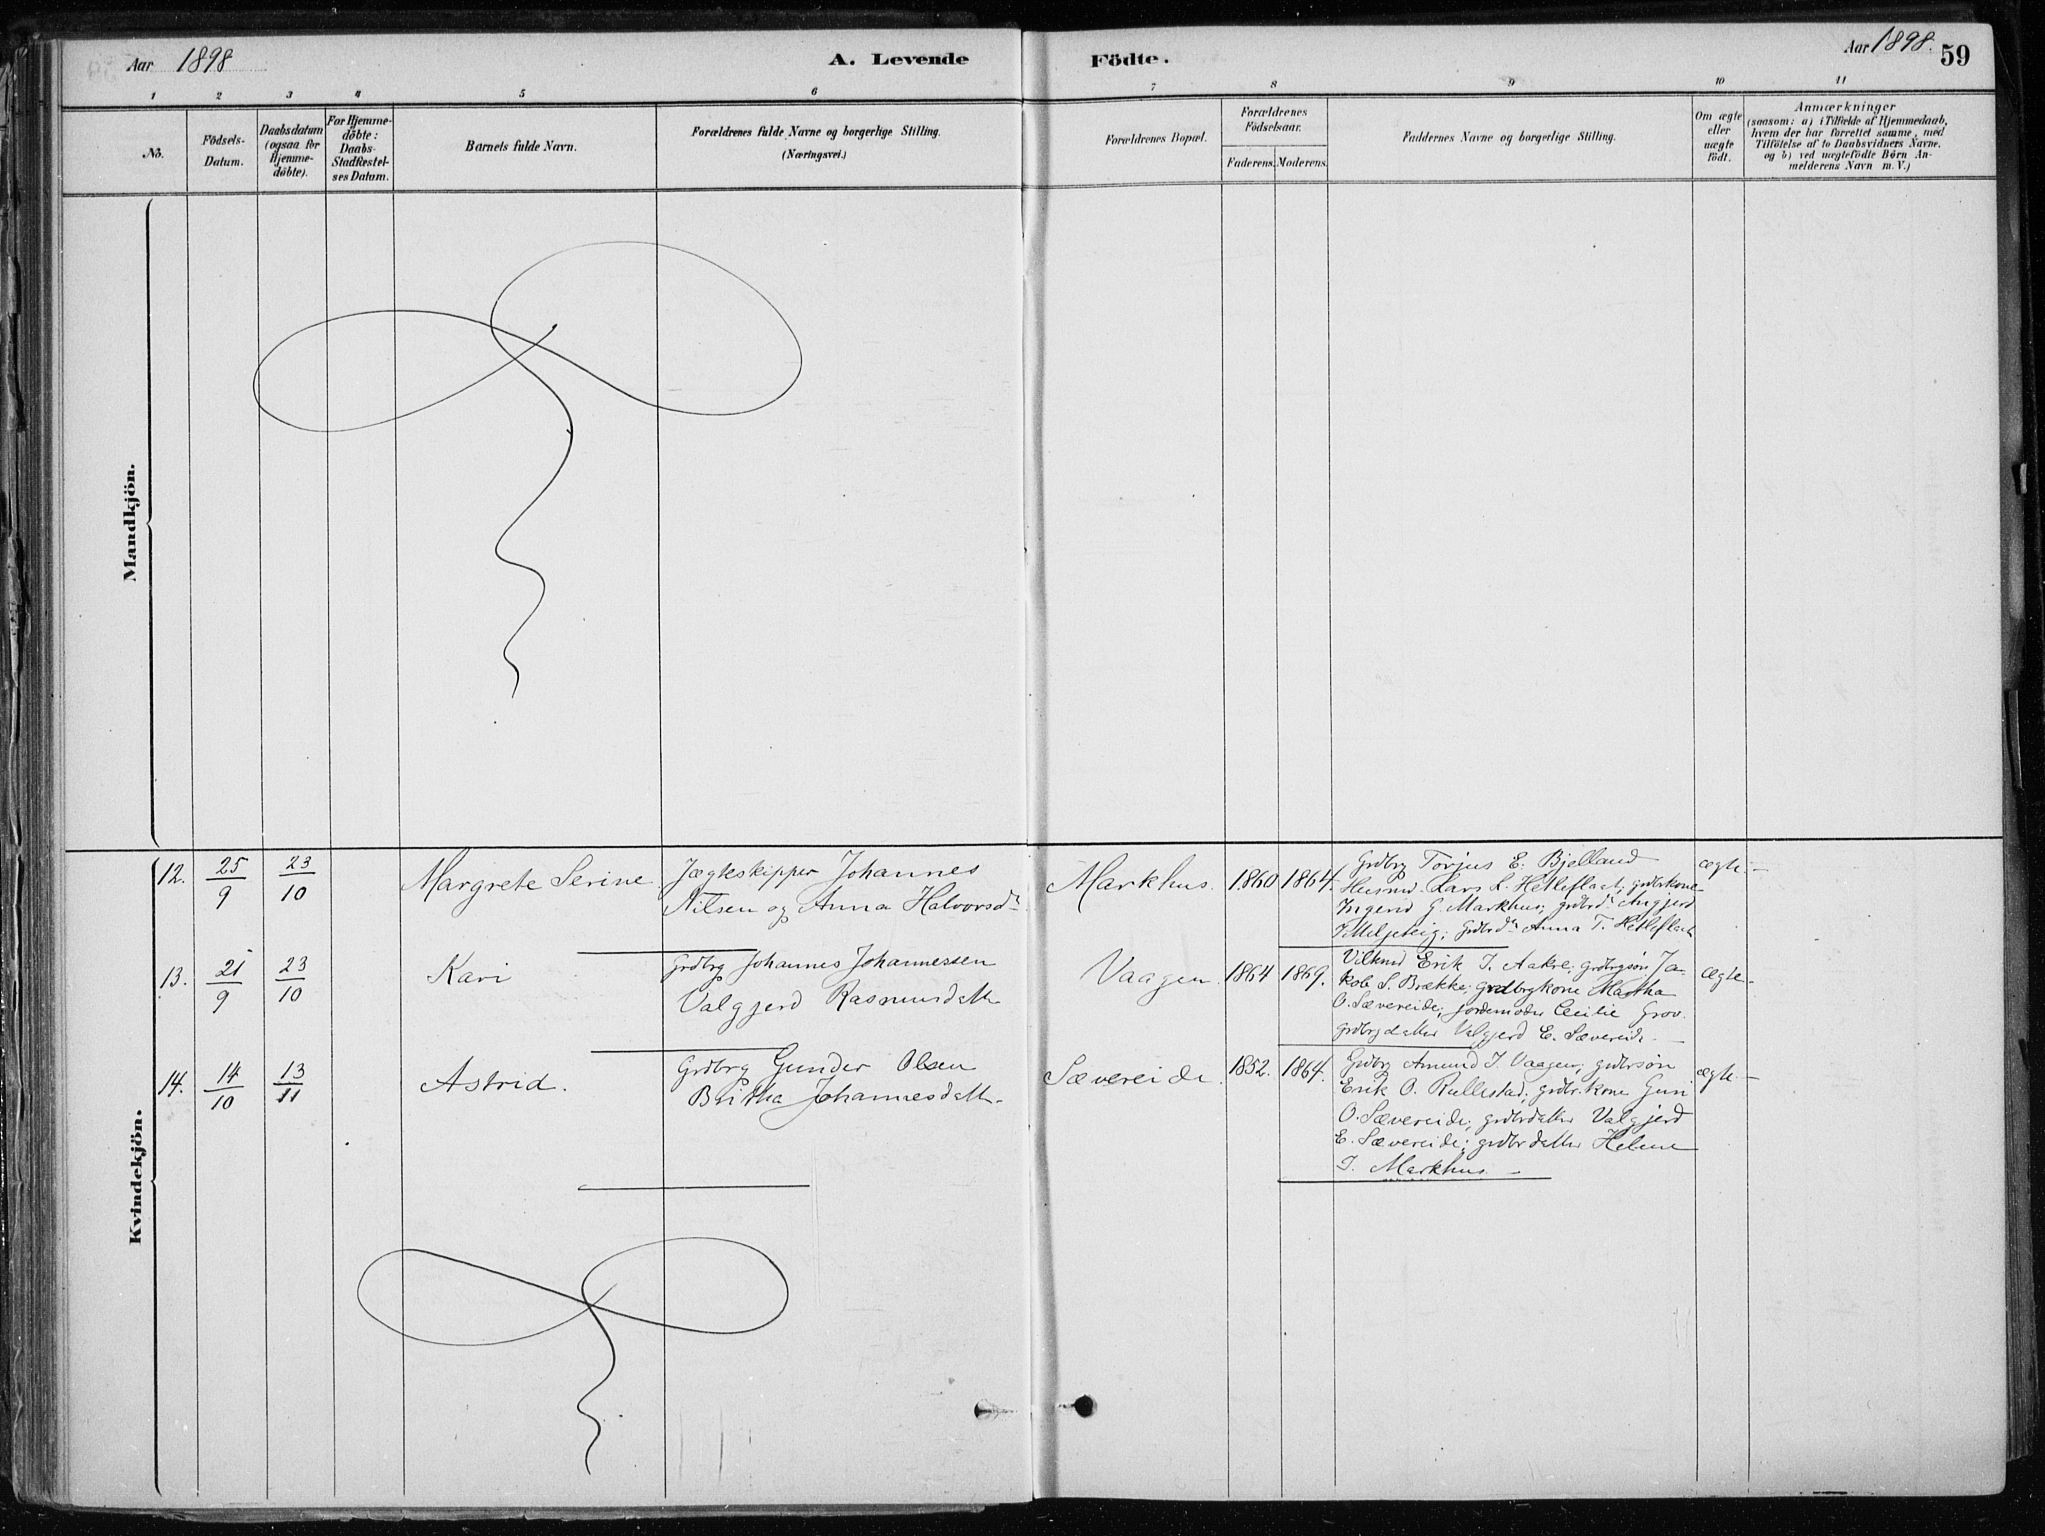 Aar 1898
A. Levende Födte.
Aar 1898. 59
1 2 3 4 5 6 7 8 9 10 11
No.
Födsels-Datum.
Daabsdatum (ogsaa for Hjemme-döbte).
For Hjemme-döbte: Daabs-Stadfæstel-ses Datum.
Barnets fulde Navn.
Forældrenes fulde Navne og borgerlige Stilling.
(Næringsvei.)
Forældrenes Bopæl.
Forældrenes Födselsaar.
Faderens. Moderens.
Faddernes Navne og borgerlige Stilling.
Om ægte eller uægte födt.
Anmærkninger
(saasom: a) i Tilfælde af Hjemmedaab,
hvem der har forrettet samme, med
Tilföielse af to Daabsvidners Navne,
og b) ved uægtefödte Børn An-
melderens Navn m.V.)
Mandkjön.
Kvindekjön.
12. 25/9 23/10 Margrete Serine Jægteskipper Johannes
Nilsen og Anna Halvorsdr
Markhus. 1860 1864.
Grdbrg Torjus E. Bjelland
Husmd. Lars L. Hetleflaat, grdbrkone
Ingerid G. Markhus; grdbrdr Angjerd
Miljeteig; grdbrdr Anna T. Hetleflaat
ægte.
13. 21/9 23/10 Kari Grdbrg Johannes Johannessen
Valgjerd Rasmusdatter
Vaagen 1864 1869.
Erik I. Aakre; grdbrgsøn Ja-
kob S. Brække; grdbrgkone Martha
O. Sævereide; jordemoder Cecilie Grov.
grdbrgdatter Valgjerd E. Sævereide.
ægte.
14. 14/10 13/11 Astrid. Grdbrg Gunder Olsen
Britha Johannesdatter.
Sævereide. 1852. 1864.
Grdbrg Amund I. Vaagen; grdbrsøn
Erik O. Rullestad; grdbr.kone Guri
O. Sævereide, grdbrdatter Valgjerd
E. Sævereide; grdbrdatter Helene
I. Markhus.
ægte.